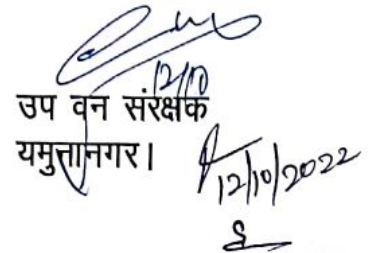 12/10
उप वन संरक्षक
यमुनानगर।
12/10/2022